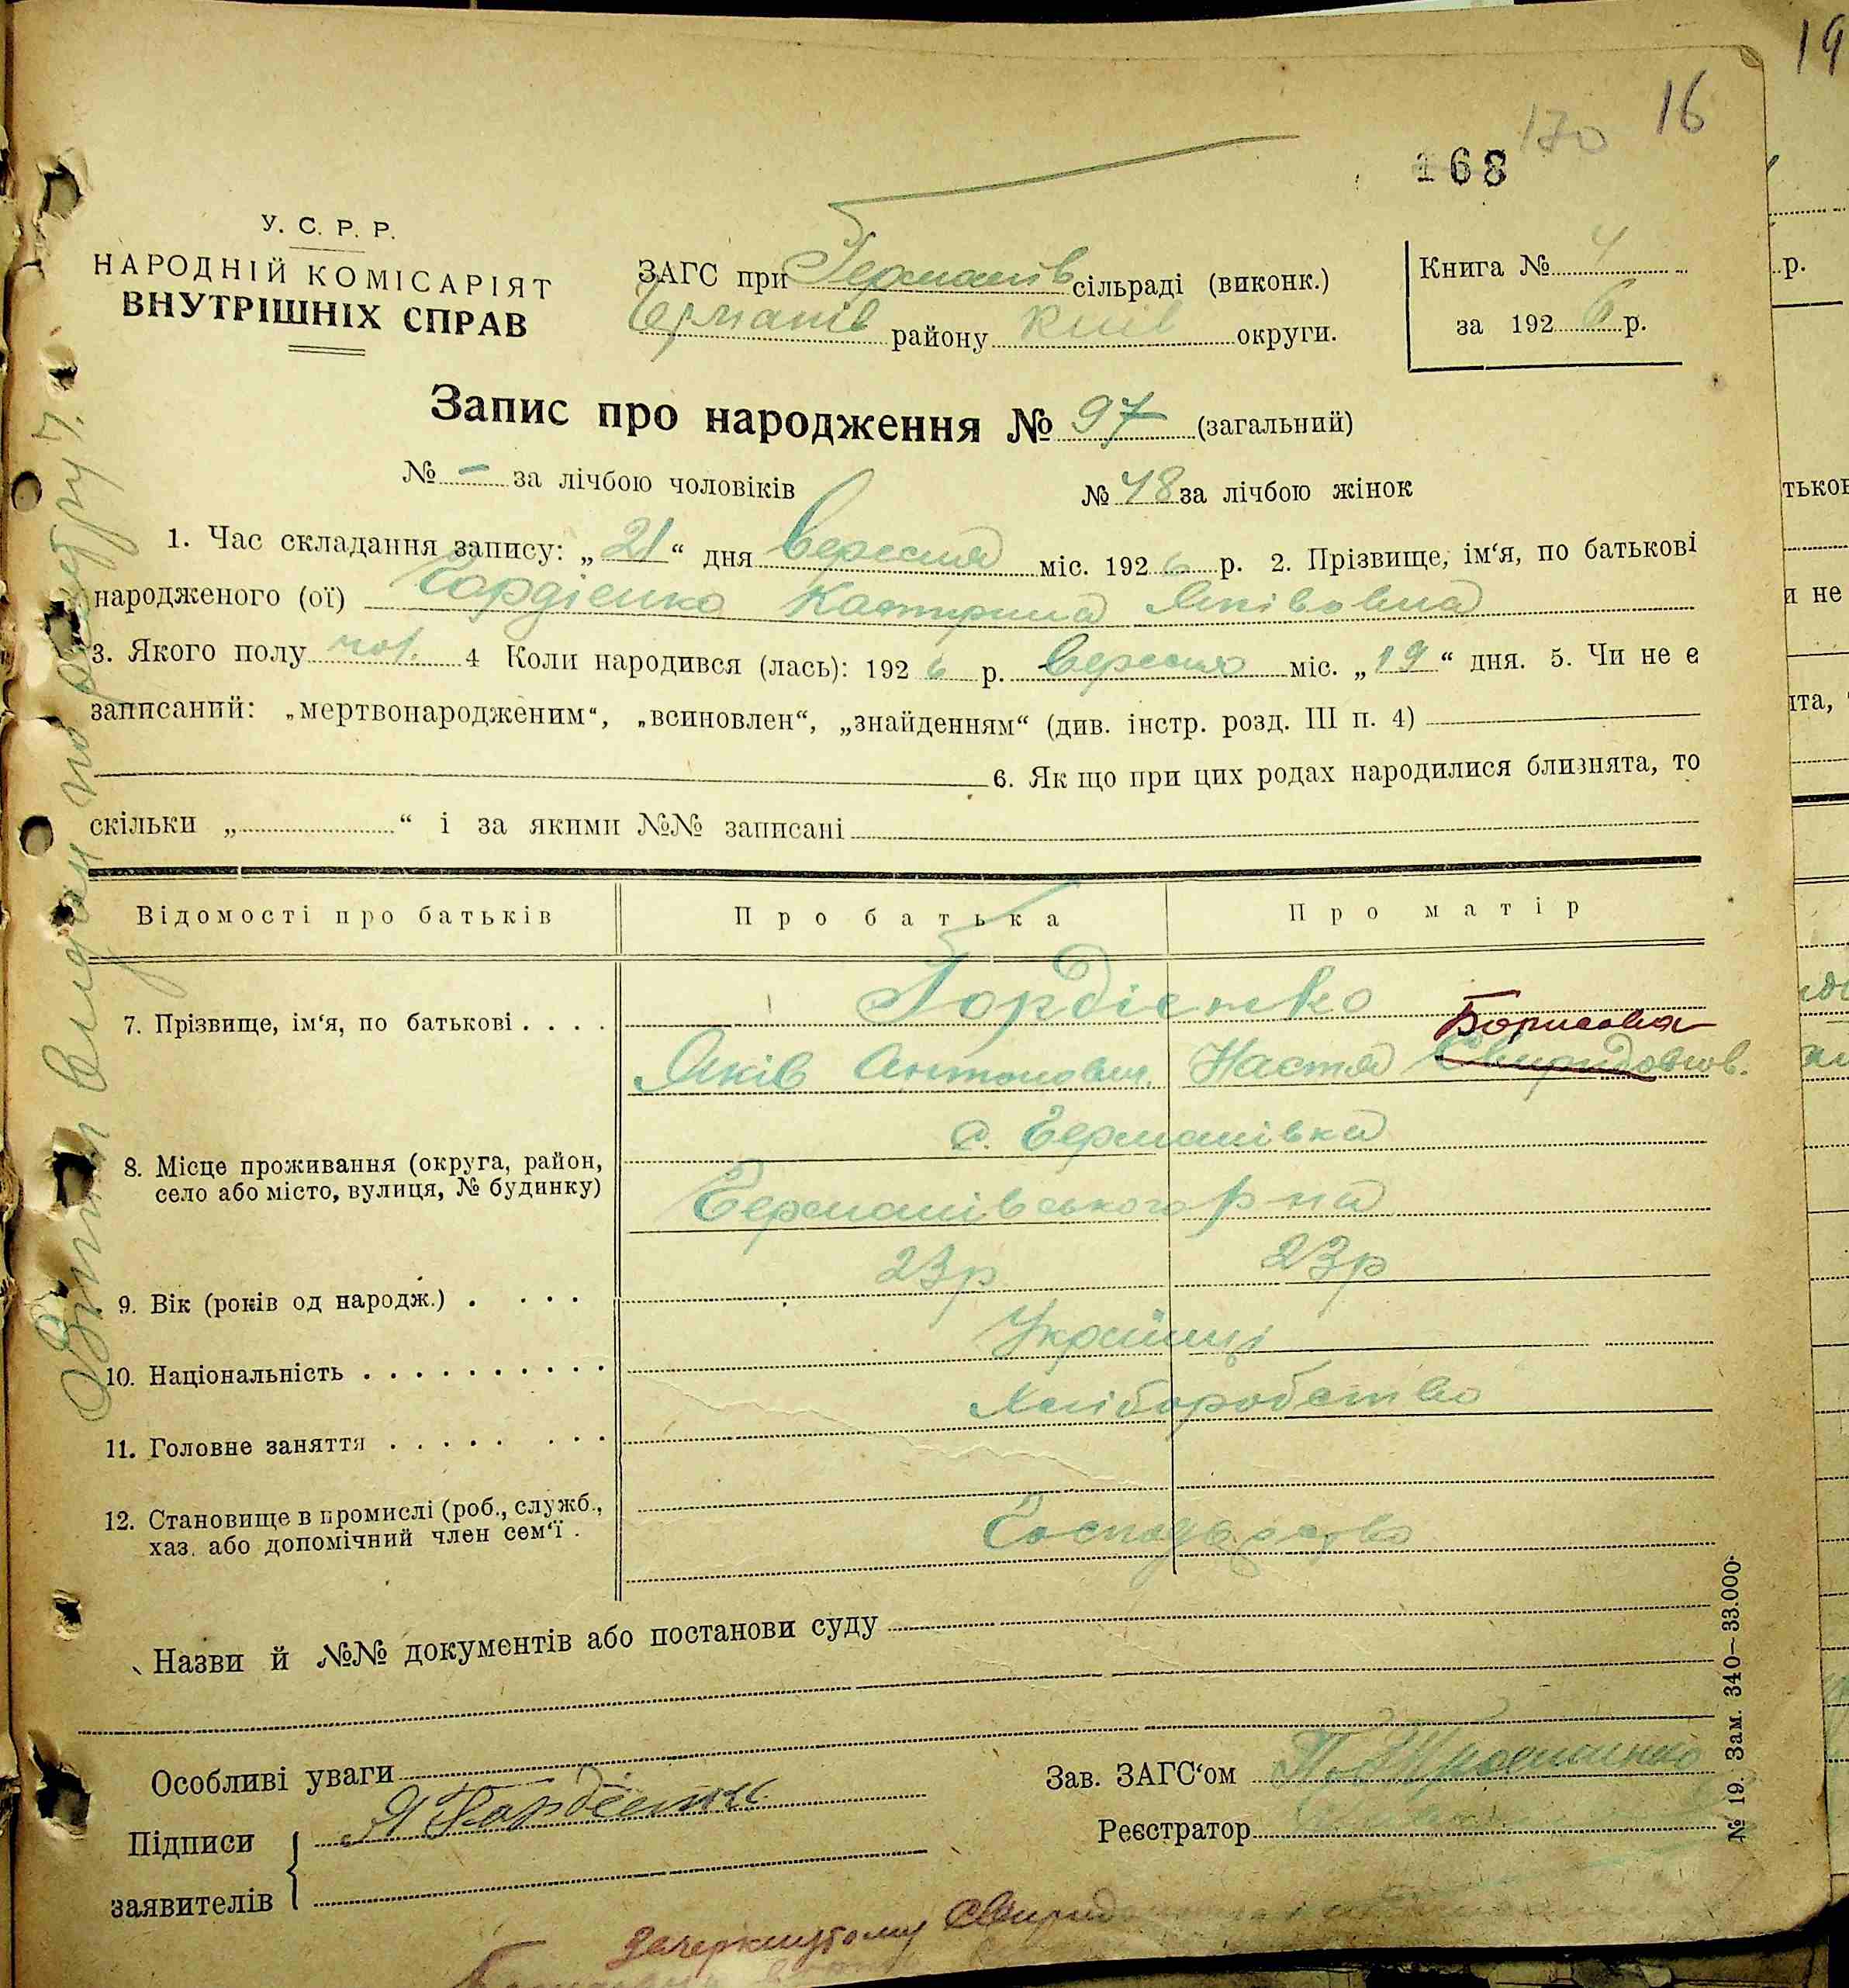 19
16
170
168
У. С. Р. Р.
НАРОДНІЙ КОМІСАРІЯТ
ВНУТРІШНІХ СПРАВ
ЗАГС при Германів сільраді (виконк.)
Германів району Київ округи.
Книга № 4
за 192 6 р.
Запис про народження № 97 (загальний)
№ – за лічбою чоловіків № 48 за лічбою жінок
1. Час складання запису: „ 21 “ дня вересня міс. 192 6 р. 2. Прізвище, ім‘я, по батькові
народженого (ої) Гордієнко Катерина Яківовна
3. Якого полу 4 Коли народився (лась): 192 6 р. вересня міс. „ 19 “ дня. 5. Чи не є
записаний: „мертвонародженим“, „всиновлен“, „знайденням“ (див. інстр. розд. III п. 4)
6. Як що при цих родах народилися близнята, то
скільки „ “ і за якими №№ записані
Відомості про батьків Про батька Про матір
7. Прізвище, ім‘я, по батькові . . . . Гордієнко
Борисовна
Яків Антонович Настя Свиридовнов.
8. Місце проживання (округа, район, село або місто, вулиця, № будинку)
с. Германівка
Германівського р-на
9. Вік (років од народж.) . . . . 23р 23р
10. Національність . . . . . . . . . . Українці
11. Головне заняття . . . . . . . . Хліборобство
12. Становище в промислі (роб., служб.,
хаз. або допомічний член сем‘ї .
Господарство
Назви й №№ документів або постанови суду
Особливі уваги
Зав. ЗАГС‘ом
Підписи
заявителів
Я Гордієнко
Реєстратор
№ 19. Зам. 340—33.000
Зачеркнутому Свирид